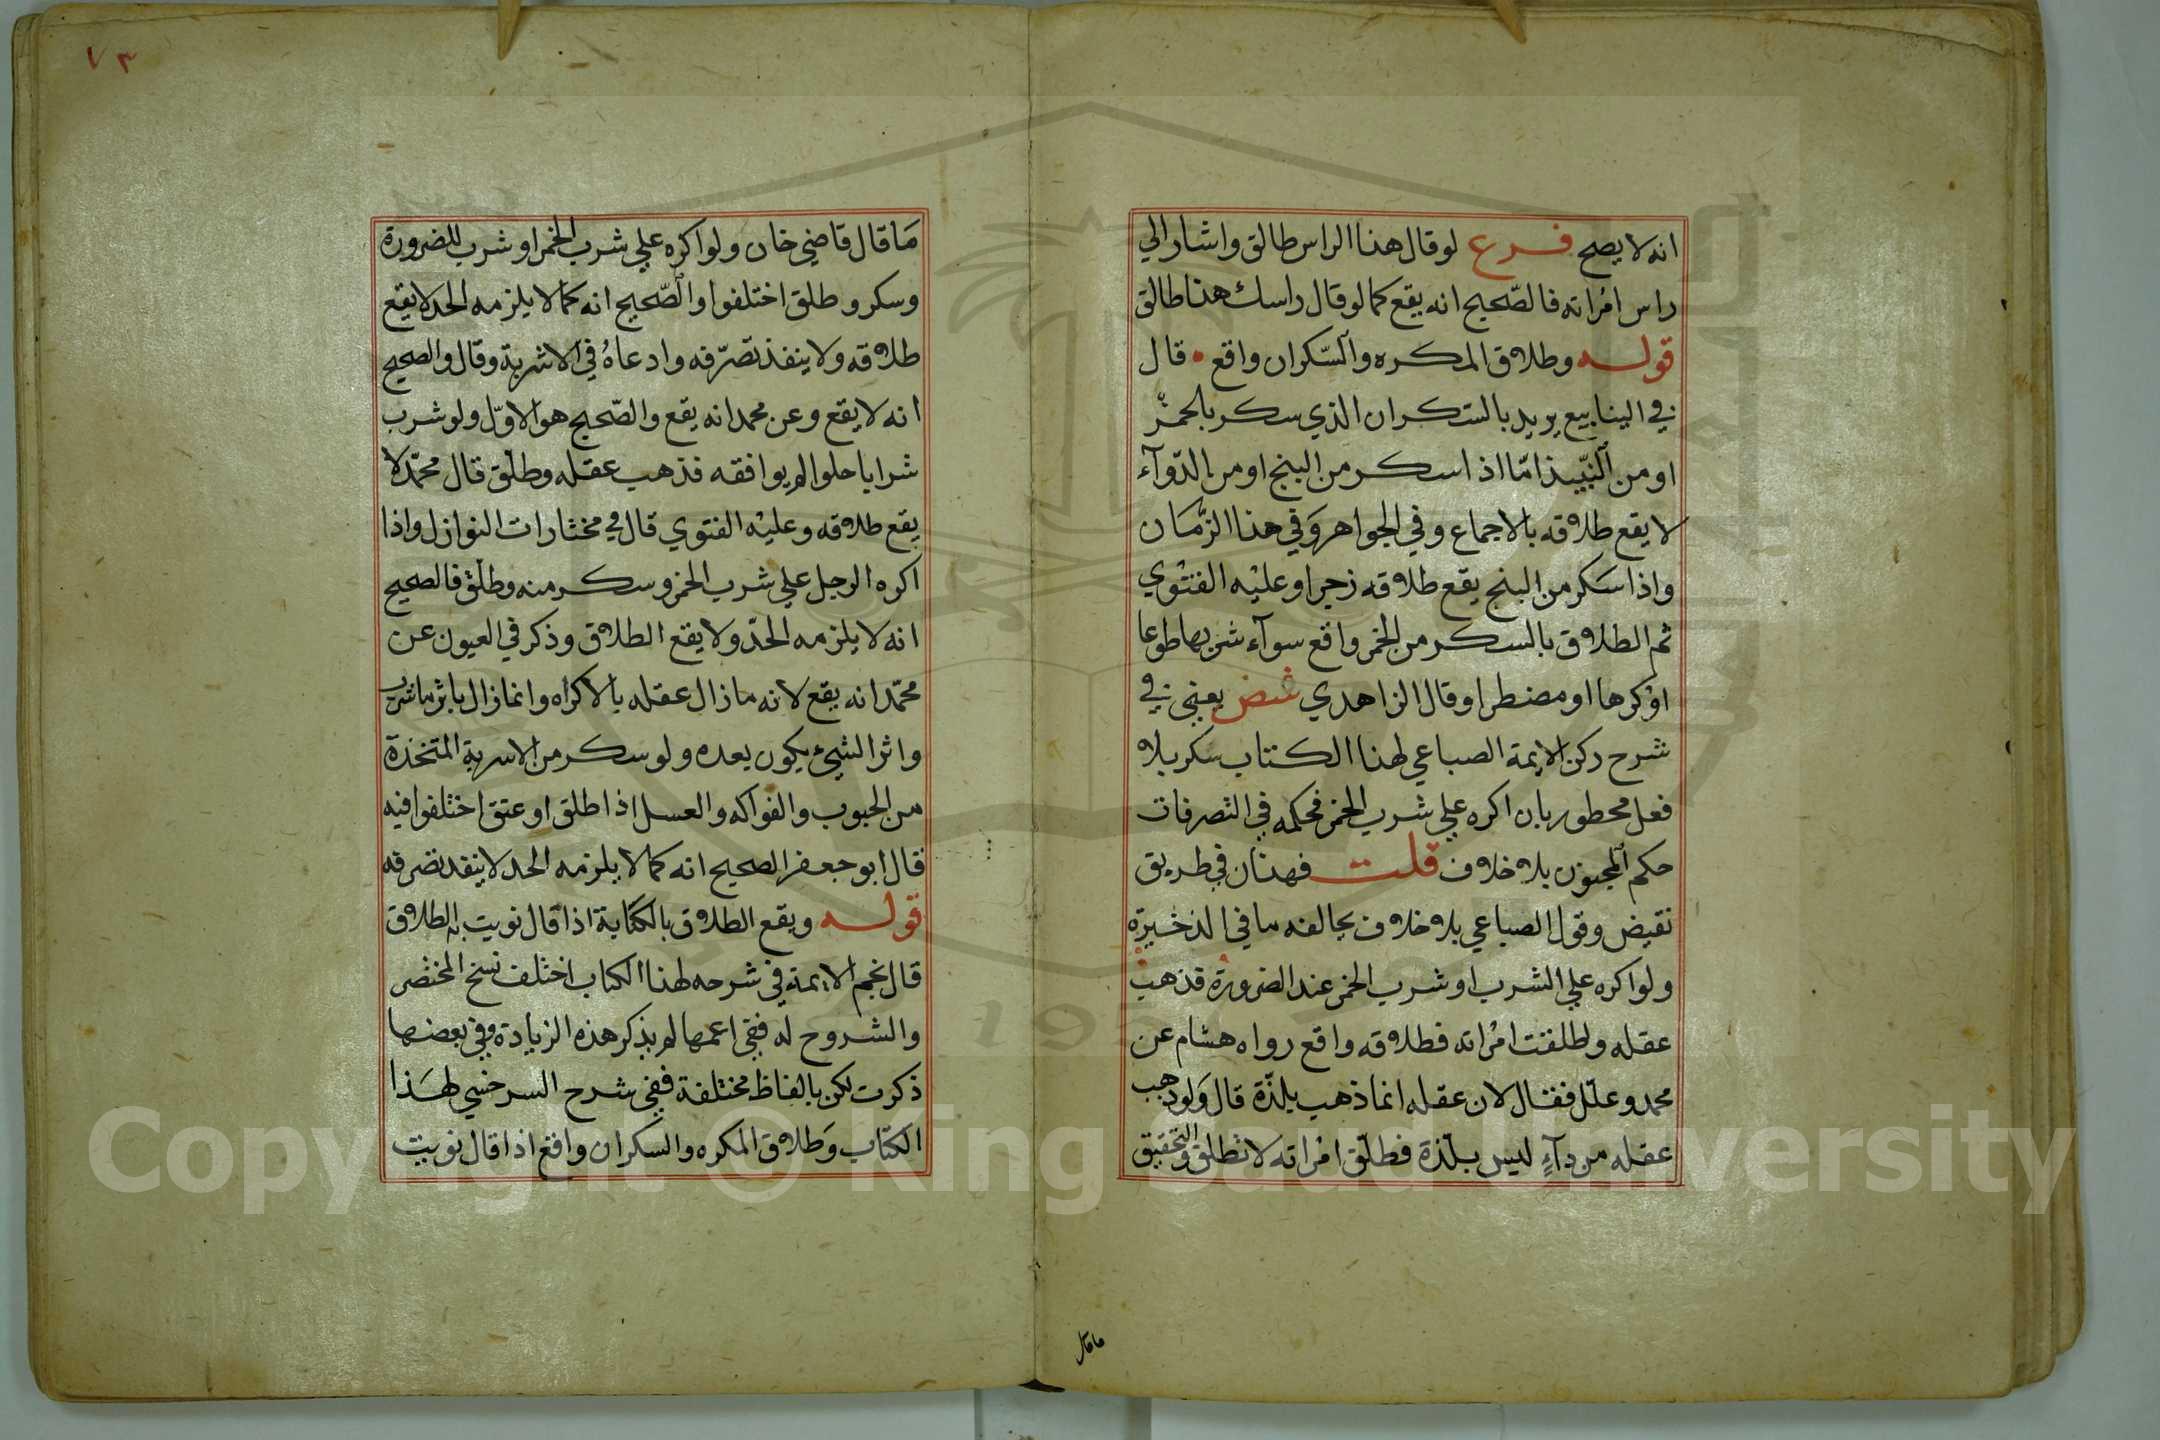 انه لا يصح فرع لو قال هذا الراس طالق واشار الي
راس امراته فالصحيح انه يقع كما لو قال راسك هذا طالق
قوله وطلاق المكره والسكران واقع قال
في الينابيع يريد بالسكران الذي سكر بالخمر
او من النبيذ امّا اذا سكر من البنج او من الدوآء
لا يقع طلاقه بالاجماع وفي الجواهر وفي هذا الزمان
واذا سكر من البنج يقع طلاقه زجرا وعليه الفتوي
ثم الطلاق بالسكر من الخمر واقع سوآء شربها طوعا
او كرها او مضطرا وقال الزاهدي شض يعني في
شرح ركن الايمة الصباعي لهذا الكتاب سكر بلا
فعل محطور بان اكره علي شرب الخمر فحكمه في التصرفات
حكم المجنون بلا خلاف قلت فهذان في طريق
نقيض وقول الصباعي بلا خلاف يخالفه ما في الذخيرة
ولو اكره علي الشرب او شرب الخمر عند الضرورة فذهب
عقله وطلقت امراته فطلاقه واقع رواه هشام عن
محمد وعلل فقال لان عقله انما ذهب بلذة قال ولو ذهب
عقله من دآء ليس بلذة فطلق امراته لا تطلق والتحقيق
ما قال
٧٣
ما قال قاضي خان ولو اكره علي شرب الخمر او شرب للضرورة
وسكر وطلق اختلفوا والصحيح انه كما لا يلزمه الحد لا يقع
طلاقه ولا ينفذ تصرفه وادعاه في الاشربة وقال والصحيح
انه لا يقع وعن محمد انه يقع والصحيح هو الاول ولو شرب
شرابا حلوا لم يوافقه فذهب عقله وطلق قال محمد لا
يقع طلاقه وعليه الفتوي قال في مختارات النوازل واذا
اكره الرجل علي شرب الخمر وسكر منه وطلق فالصحيح
انه لا يلزمه الحد ولا يقع الطلاق وذكر في العيون عن
محمد انه يقع لانه ما زال عقله بالاكراه وانما زال باثر ما شرب
واثر الشيء يكون بعده ولو سكر من الاسربة المتخذة
من الحبوب والفواكه والعسل اذا طلق او عتق اختلفوا فيه
قال ابو جعفر الصحيح انه كما لا يلزمه الحد لا ينفد تصرفه
قوله ويقع الطلاق بالكتابة اذا قال نويت به الطلاق
قال نجم الايمة في شرحه لهذا الكتاب اختلف نسخ المختصر
والشروح له ففي اعمها لم يذكر هذه الزيادة وفي بعضها
ذكرت لكن بالفاظ مختلفة ففي شرح السرخسي لهذا
الكتاب وطلاق المكره والسكران واقع اذا قال نويت
Copyright © King Saud University